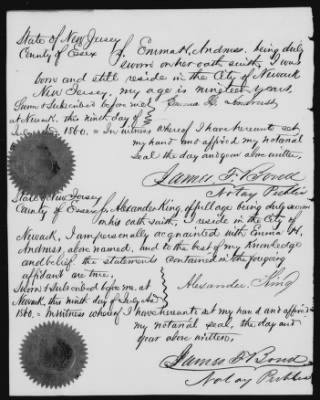 State of New Jersey
County of Essex ss. Emma H. Andruss. being duly
sworn on her oath saith, I was
born and still reside in the City of Newark
New Jersey. my age is nineteen years,
Sworn & Subscribed before me Emma H. Andruss
at Newark, this ninth day of
1860. = In witness whereof I have hereunto set
my hand and affixed my notarial
seal the day and year above written,
James F. Bond
Notay Public
State of New Jersey
County of Essex ss. Alexander King, of full age being duly sworn
on his oath saith, I reside in the City of
Newark, I am personally acquainted with Emma H.
Andruss, above named. and to the best of my Knowledge
and belief the statements contained in the forgoing
affidavit are true.
Sworn & Subscribed before me at Alexander King
Newark, this ninth day of July Ad
1860. = In witness whereof I have hereunto set my hand and affixed
my notarial seal, the day and
year above written,
James F. Bond
Notay Public